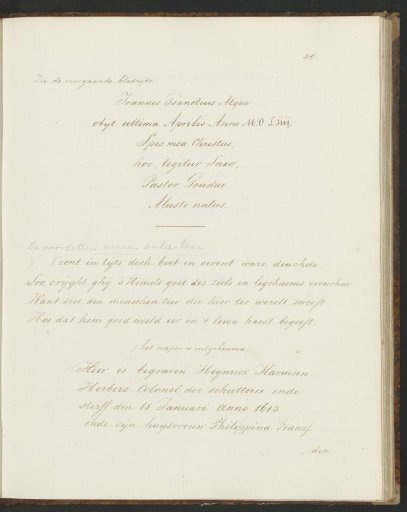 40.
Zie de voorgaande bladzijde
Joannes Tsanolius Aeque
obijt ultima Aprilis Anno M.D.Liiij
Spes mea Christus,
hoc legitur Saxo,
Pastor Goudae
Alusti natus.
De voorletters waren onleesbaar
cont in tijts doch boet en oevent ware deuchde
Soo cryght ghij s'Hemels goet des ziels en lighaems vreuchde
Want siet den menschen leer die hier ter werelt sweeft
Hoe dat hem goed weeld eer en t leven haest begeeft.
(het wapen is uitgehouwen)
Hier is begraven Heynrick Harmsen
Herbers Colonel der schutterie ende
sterff den 18 Januari Anno 1613
ende sijn huijsvrouw Philippina Fransf.
den